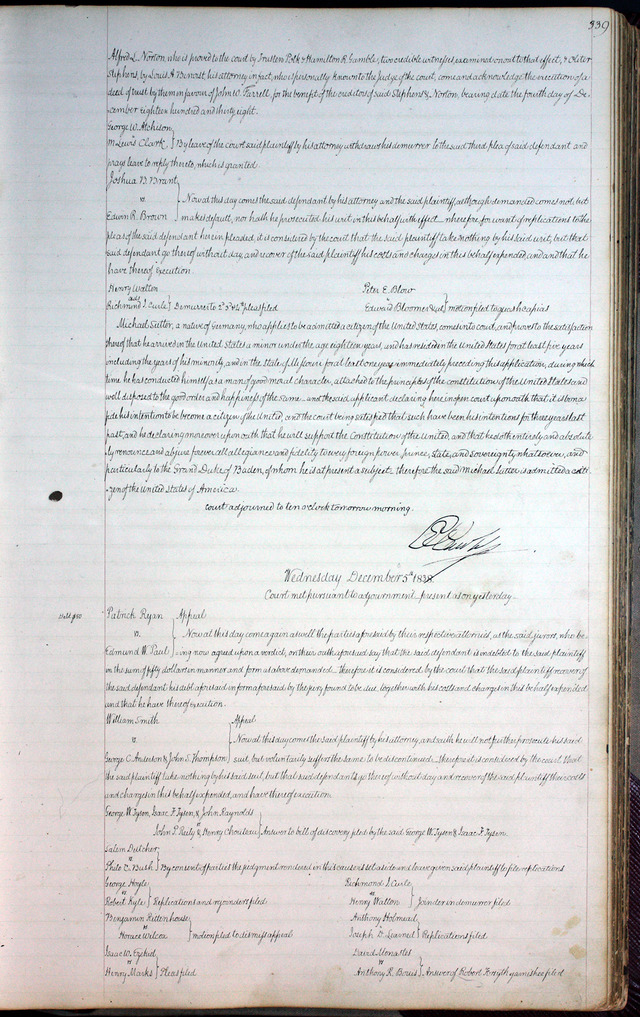 339
Alfred L. Norton, who is proved to the court by Trusten Polk & Hamilton R. Gamble, two credible witnesses examined on oath to that effect, & Oliver
Stephens, by Louis A. Benoist, his attorney in fact, who is personally known to the judge of the court, come and acknowledge the execution of a
deed of trust by them in favour of John W. Farrell, for the benefit of the creditors of said Stephens & Norton, bearing date the fourth day of De-
cember eighteen hundred and thirty eight.
George W. Atchison,
vs
M. Lewis Clark, } By leave of the court said plaintiff by his attorney withdraws his demurrer to the said third plea of said defendant and
prays leave to reply thereto, which is granted.
Joshua B. Brant
vs } Now at this day comes the said defendant by his attorney and the said plaintiff although demanded comes not but
Edwin R. Brown makes default, nor hath he prosecuted his writ in this behalf with effect wherefore for want of replications to the
pleas of the said defendant herein pleaded, it is considered by the court that the said plaintiff take nothing by his said writ, but that
said defendant go thereof without day, and recover of the said plaintiff his costs and charges in this behalf expended, and that he
have thereof execution.
Henry Walton
ads
Richmond J. Curle } Demurrer to 2d 3d & 4th pleas filed
Peter E. Blow
vs
Edward Bloomer & al } motion filed to quash capias
Michael Sutter, a native of Germany, who applies to be admitted a citizen of the United States, comes into court, and proves to the satisfaction
thereof that he arrived in the United States a minor under the age eighteen years, and has resided in the United States for at least five years
including the years of his minority, and in the State of Missouri for at least one year immediately preceding this application, during which
time he has conducted himself as a man of good moral character, attached to the principles of the constitution of the United States and
well disposed to the good order and happiness of the same and the said applicant declaring here in open court upon oath that it is bona
fide his intention to become a citizen of the United, and the court being satisfied that such have been his intentions for three years last
past, and he declaring moreover upon oath that he will support the Constitution of the United, and that he doth entirely and absolute
ly renounce and abjure forever all allegiance and fidelity to every foreign power, prince, state, and sovereignty whatsoever, and
particularly to the Grand Duke of Baden, of whom he is at present a subject therefore the said Michael Sutter is admitted a citi
zen of the United States of America.
court adjourned to ten o'clock tomorrow morning.
Wednesday December 5th 1838
Court met pursuant to adjournment present as on yesterday
Patrick Ryan } Appeal
vs Now at this day come again as well the parties aforesaid by their respective attornies, as the said jurors, who be-
Edmund W. Paul ing now agreed upon a verdict, on their oath aforesaid say that the said defendant is indebted to the said plaintiff
in the sum of fifty dollars in manner and form as above demanded therefore it is considered by the court that the said plaintiff recover of
the said defendant his debt aforesaid in form aforesaid by the jury found to be due, together with his costs and charges in this behalf expended
and that he have thereof execution.
William Smith } Appeal
vs Now at this day comes the said plaintiff by his attorney and saith he will not further prosecute his said
George C. Anderson & John S. Thompson suit, but voluntarily suffers the same to be discontinued therefore it is considered by the court that
the said plaintiff take nothing by his said suit, but that said defendants go thereof without day and recover of the said plaintiff their costs
and charges in this behalf expended, and have thereof execution.
George W. Tyson, Isaac F. Tyson, & John Raynolds
vs
John P. Reily & Henry Chouteau } Answer to bill of discovery filed by the said George W. Tyson & Isaac F. Tyson.
Salem Dutcher
vs
Philo C. Bush } By consent of parties the judgment rendered in this cause is set aside and leave given said plaintiff to file replications
George Hoyle
vs
Robert Kyle } Replications and rejoinders filed
Richmond J. Curle
vs
Henry Walton } Joinder in demurrer filed
Benjamin Rittenhouse
vs
Horace Wilcox } motion filed to dismiss appeal
Anthony Holmead
vs
Joseph D. Learned } Replications filed
Isaac W. Ezekiel
vs
Henry Marks } Pleas filed
David Monastes
vs
Anthony R. Bouis } Answer of Robert Forsyth garnishee filed